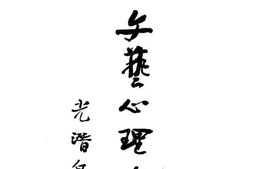 文藝心理
光潛